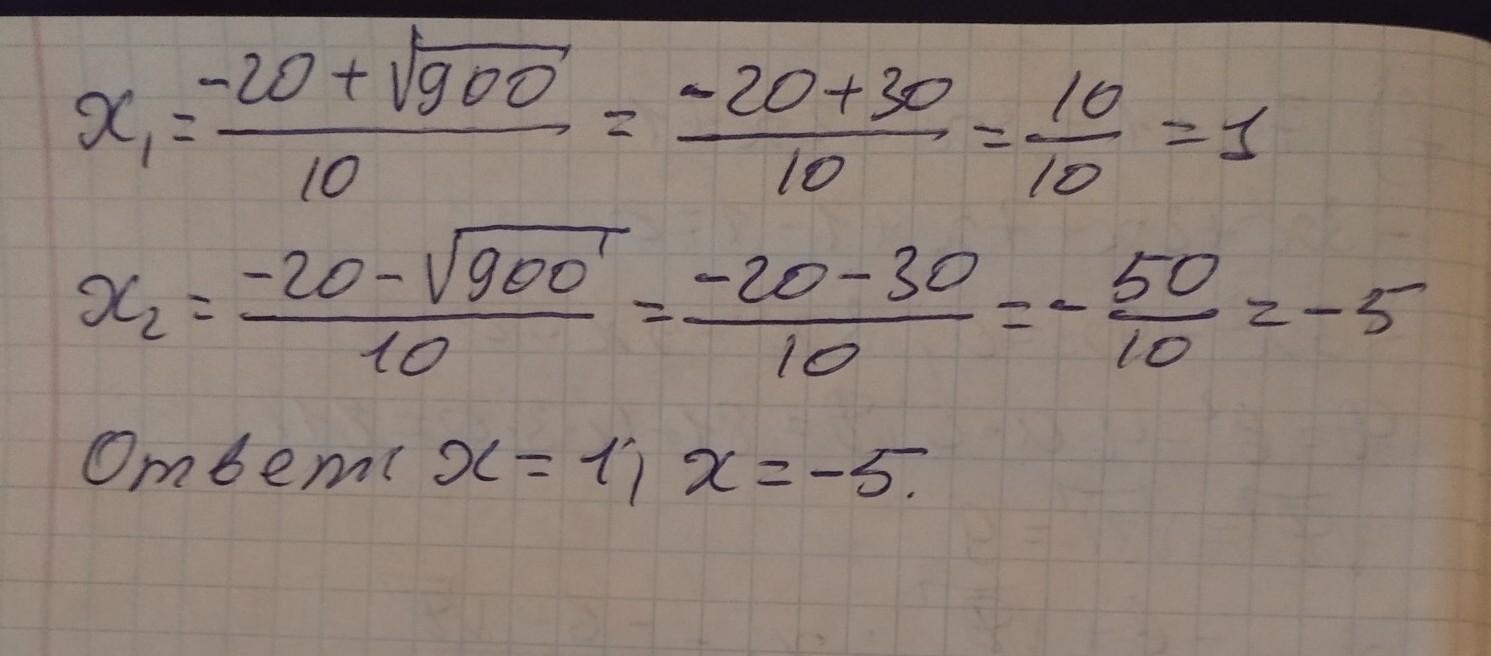 x₁ = (-20 + √900)/10 = (-20 + 30)/10 = 10/10 = 1
x₂ = (-20 - √900)/10 = (-20 - 30)/10 = - 50/10 = -5
Ответ: x = 1; x = -5.